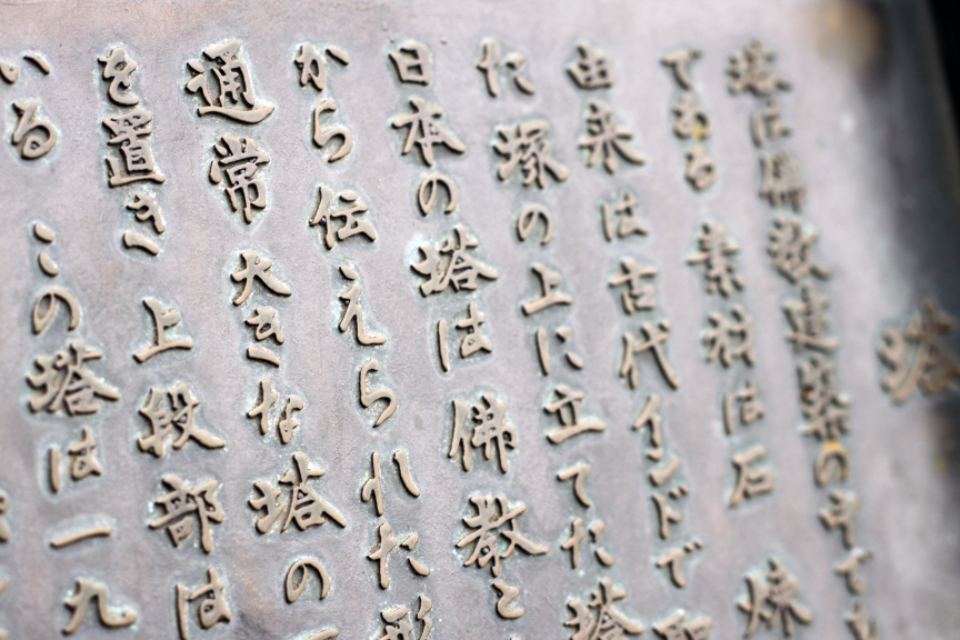 塔
塔は佛教建築の中でも
である 素材は石
由来は古代インドで聖
た塚の上に立てた塔
日本の塔は佛教と
から伝えられた形
通常大きな塔の
を置き 上段部は
いる この塔は一九